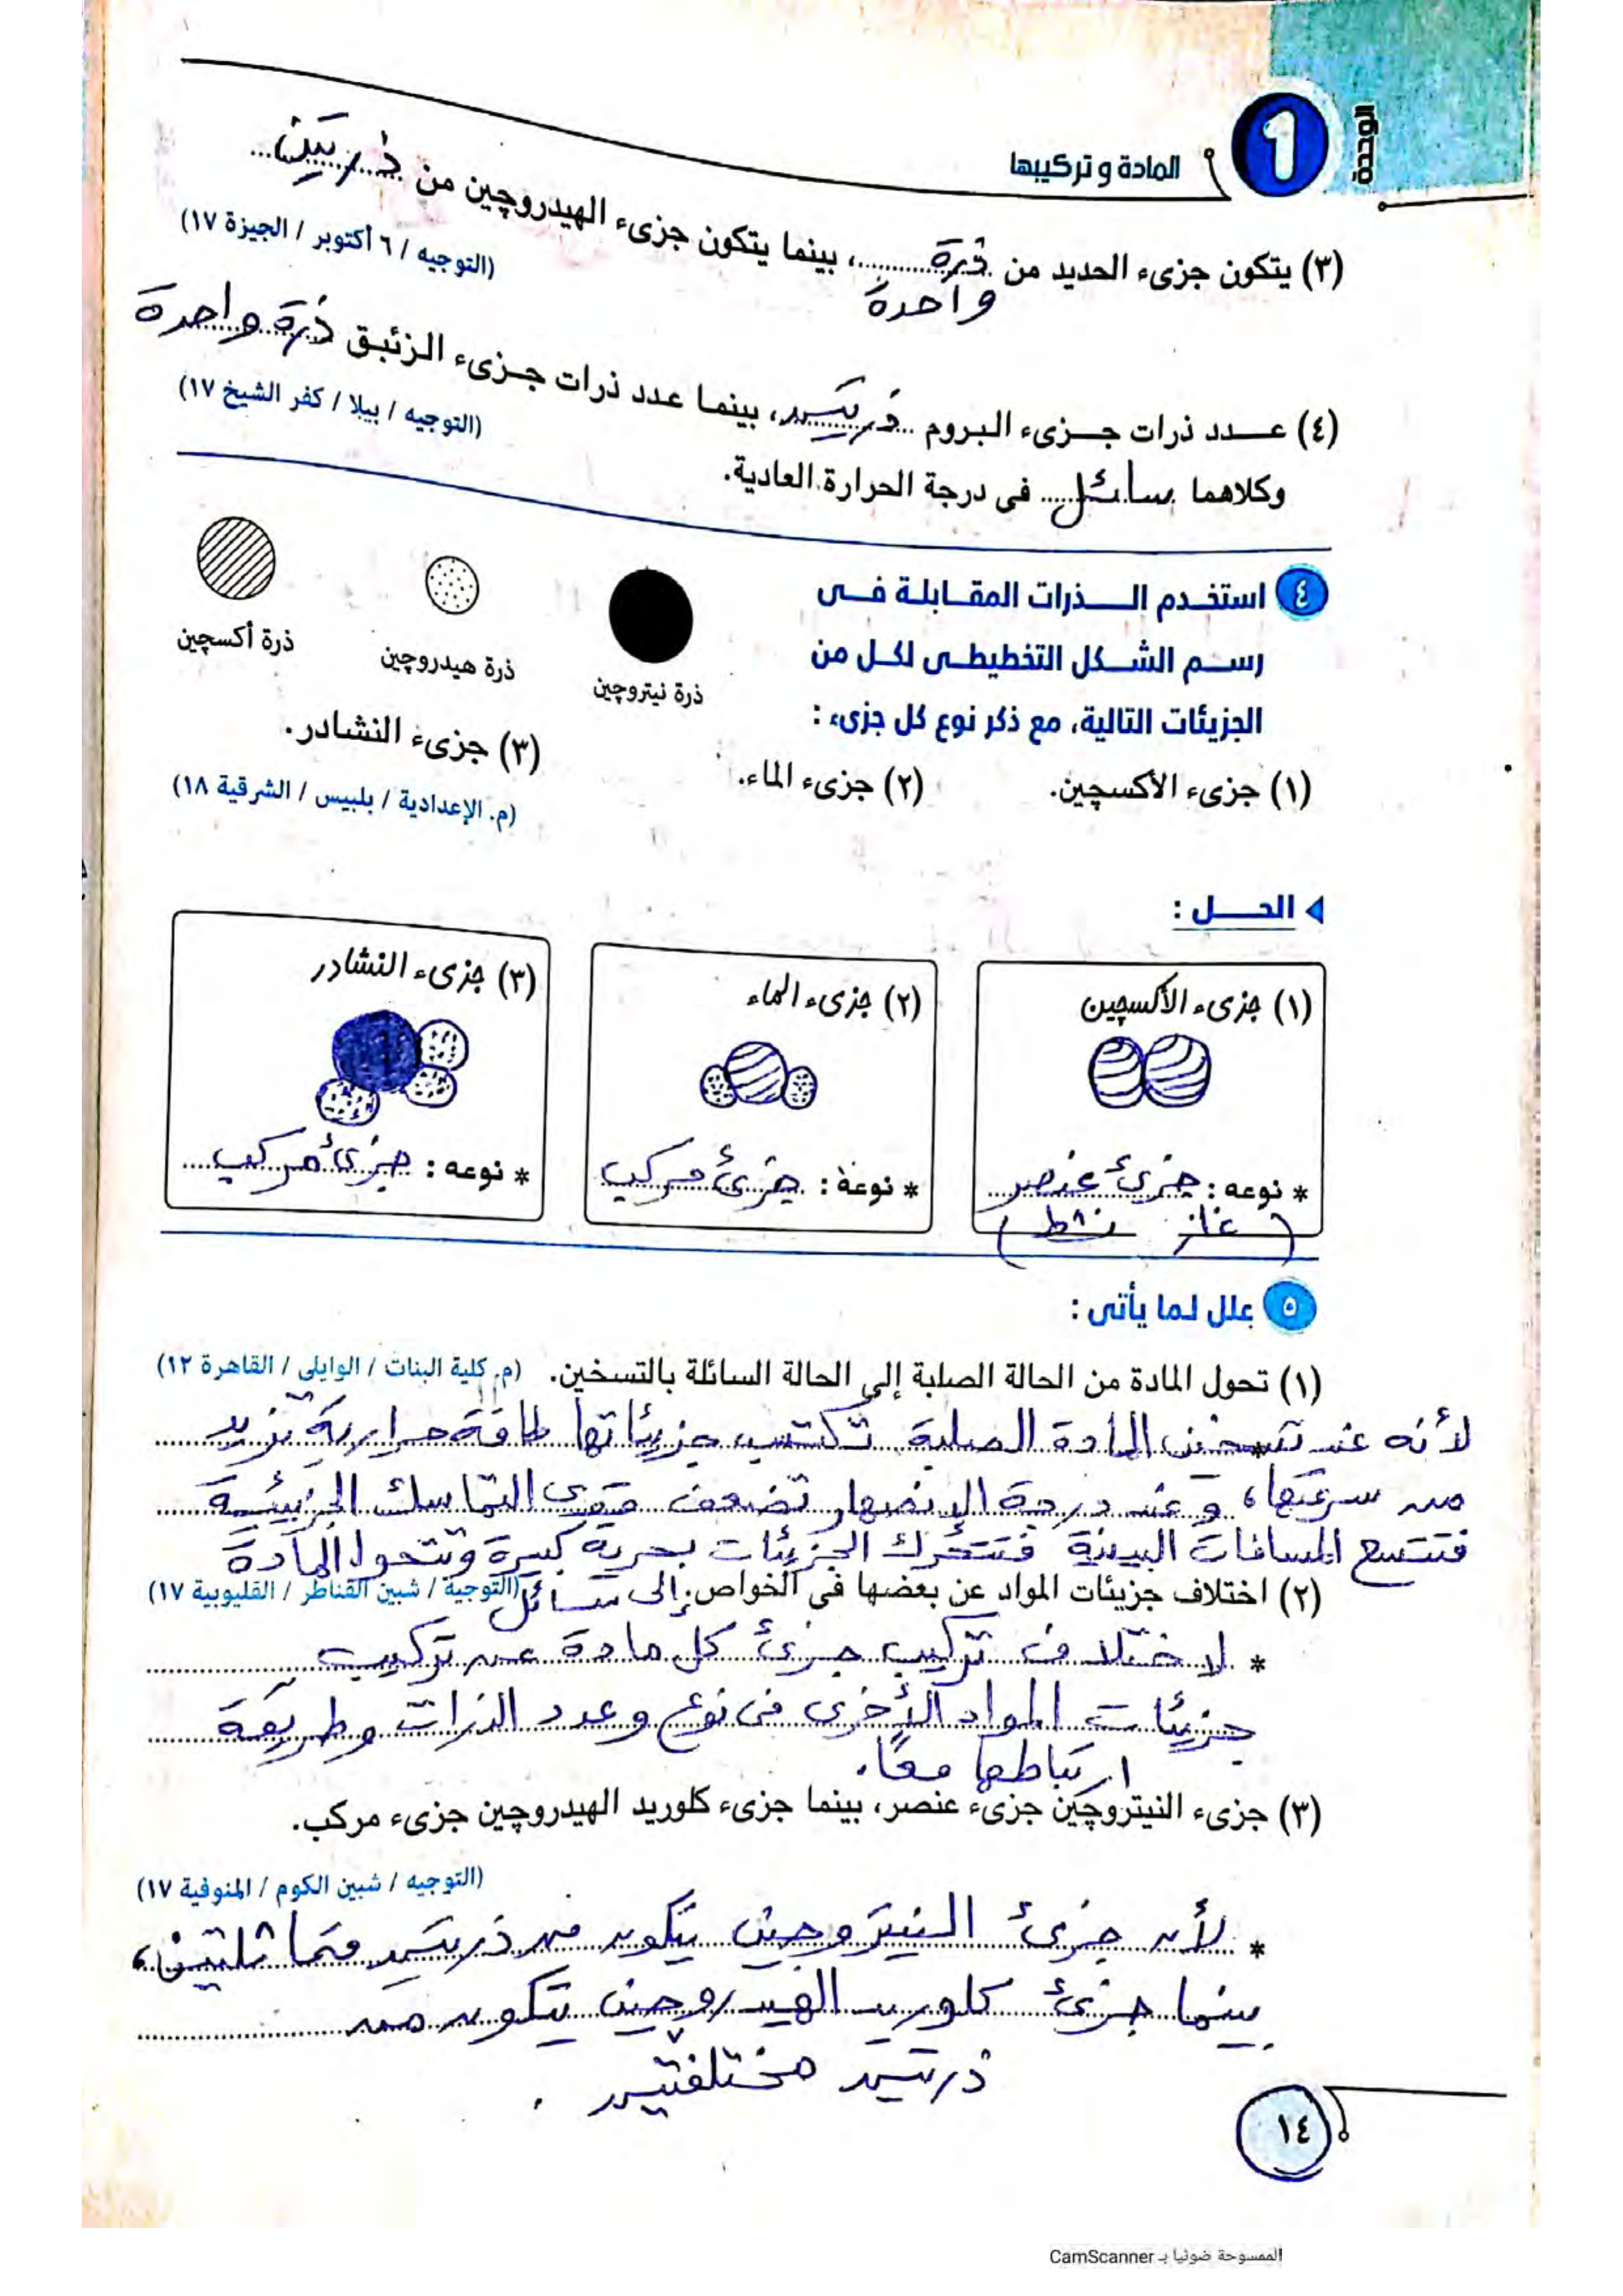 الوحدة
1
المادة و تركيبها
(٣) يتكون جزىء الحديد من ذرة واحدة، بينما يتكون جزىء الهيدروچين من ذرتين
(التوجيه / ٦ أكتوبر / الجيزة ١٧)
(٤) عدد ذرات جزىء البروم ذرتين، بينما عدد ذرات جزىء الزئبق ذرة واحدة
(التوجيه / بيلا / كفر الشيخ ١٧)
وكلاهما سائل فى درجة الحرارة العادية.
٤ استخدم الذرات المقابلة فى
رسم الشكل التخطيطى لكل من
الجزيئات التالية، مع ذكر نوع كل جزىء :
ذرة نيتروچين
ذرة هيدروچين
ذرة أكسچين
(١) جزىء الأكسچين.
(٢) جزىء الماء.
(٣) جزىء النشادر.
(م. الإعدادية / بلبيس / الشرقية ١٨)
الحل :
(١) جزىء الأكسچين
* نوعه : جزئ عنصر
(غاز نشط)
(٢) جزىء الماء
* نوعه : جزئ مركب
(٣) جزىء النشادر
* نوعه : جزئ مركب
٥ علل لما يأتى :
(١) تحول المادة من الحالة الصلبة إلى الحالة السائلة بالتسخين. (م. كلية البنات / الوايلى / القاهرة ١٢)
لأنه عند تسخين المادة الصلبة تكتسب جزيئاتها طاقة حرارية تزيد
من سرعتها، وعند درجة الانصهار تضعف قوى التماسك الجزيئية
فتتسع المسافات البينية فتتحرك الجزيئات بحرية كبيرة وتتحول المادة
إلى سائل
(٢) اختلاف جزيئات المواد عن بعضها فى الخواص. (التوجيه / شبين القناطر / القليوبية ١٧)
* لاختلاف تركيب جزئ كل مادة عن تركيب
جزيئات المواد الأخرى فى نوع وعدد الذرات وطريقة
ارتباطها معًا.
(٣) جزىء النيتروچين جزىء عنصر، بينما جزىء كلوريد الهيدروچين جزىء مركب.
(التوجيه / شبين الكوم / المنوفية ١٧)
* لأن جزئ النيتروجين يتكون من ذرتين متماثلتين،
بينما جزئ كلوريد الهيدروجين يتكون من
ذرتين مختلفتين .
١٤
الممسوحة ضوئيا بـ CamScanner